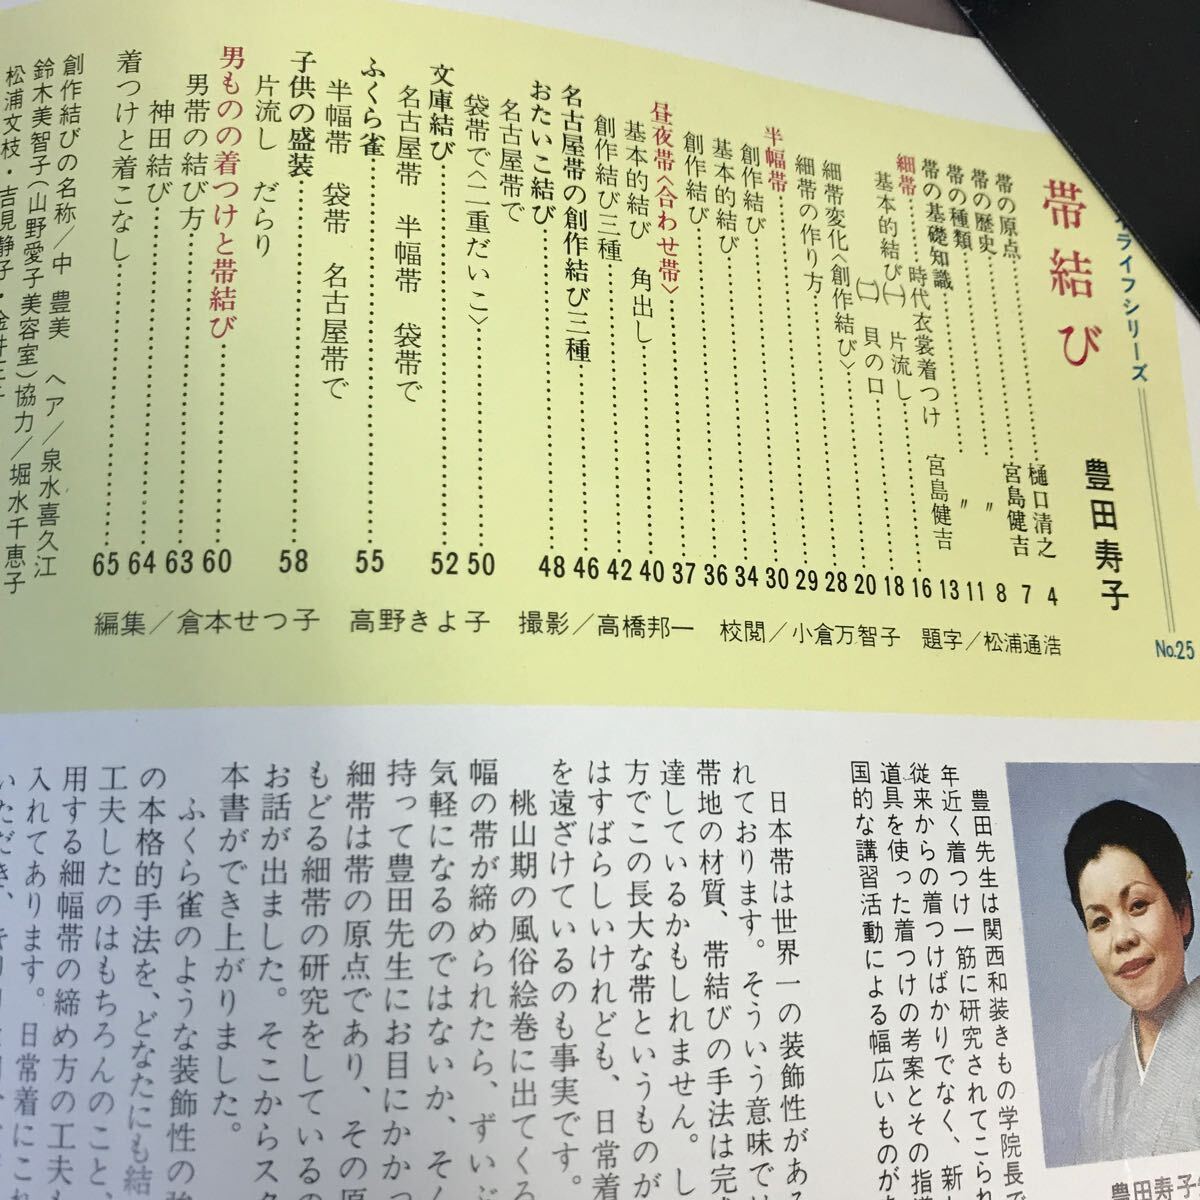 イライフシリーズ
No.25
帯結び
豊田寿子
帯の原点 樋口清之 4
帯の歴史 宮島健吉 7
帯の種類 〃 8
帯の基礎知識 〃 11
時代衣裳着つけ 宮島健吉 13
細帯 16
基本的結び㈠ 片流し 18
㈡ 貝の口 20
細帯変化〈創作結び〉 28
細帯の作り方 29
半幅帯 30
創作結び 34
基本的結び 36
創作結び 37
昼夜帯〈合わせ帯〉
基本的結び 角出し 40
創作結び三種 42
名古屋帯の創作結び三種 46
おたいこ結び 48
名古屋帯で
袋帯で〈二重だいこ〉 50
文庫結び 52
名古屋帯 半幅帯 袋帯で
ふくら雀 55
半幅帯 袋帯 名古屋帯で
子供の盛装 58
片流し だらり
男ものの着つけと帯結び 60
男帯の結び方 63
神田結び 64
着つけと着こなし 65
創作結びの名称/中 豊美 ヘア/泉水喜久江
鈴木美智子(山野愛子美容室)協力/堀水千恵子
松浦文枝・吉見静子・金井
編集/倉本せつ子 高野きよ子 撮影/高橋邦一 校閲/小倉万智子 題字/松浦通浩
豊田先生は関西和装きもの学院長
年近く着つけ一筋に研究されてこられ
従来からの着つけばかりでなく、新し
道具を使った着つけの考案とその指導
国的な講習活動による幅広いものが
豊田寿子
日本帯は世界一の装飾性がある
れております。そういう意味では
帯地の材質、帯結びの手法は完
達しているかもしれません。し
方でこの長大な帯というものが
はすばらしいけれども、日常着
を遠ざけているのも事実です。
桃山期の風俗絵巻に出てくる
幅の帯が締められたら、ずいぶ
気軽になるのではないか、そん
持って豊田先生にお目にかかっ
細帯は帯の原点であり、その原
もどる細帯の研究をしているの
お話が出ました。そこからスタ
本書ができ上がりました。
ふくら雀のような装飾性の強
の本格的手法を、どなたにも結
工夫したのはもちろんのこと、
用する細幅帯の締め方の工夫も
入れてあります。日常着にこれ
いただき、